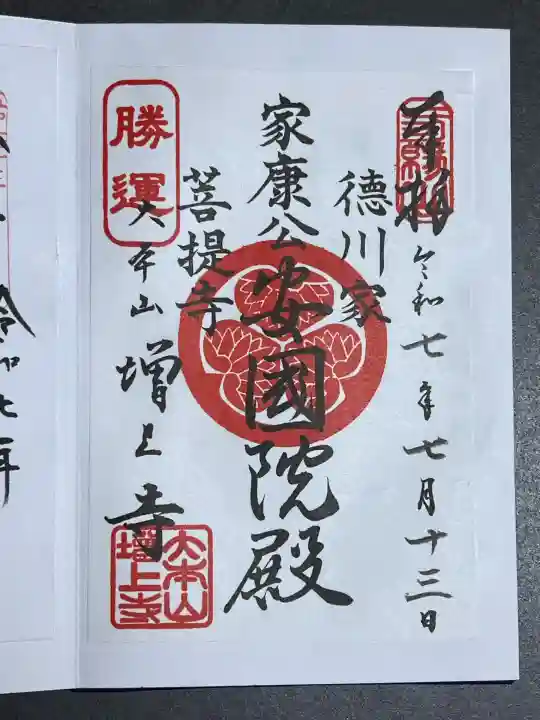 奉拝
令和七年七月十三日
徳川家
家康公安國院殿
菩提寺
勝運
大本山増上寺
大本山
増上寺
令和七年